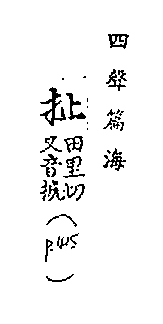 四聲篇海
扯
田里切
又音